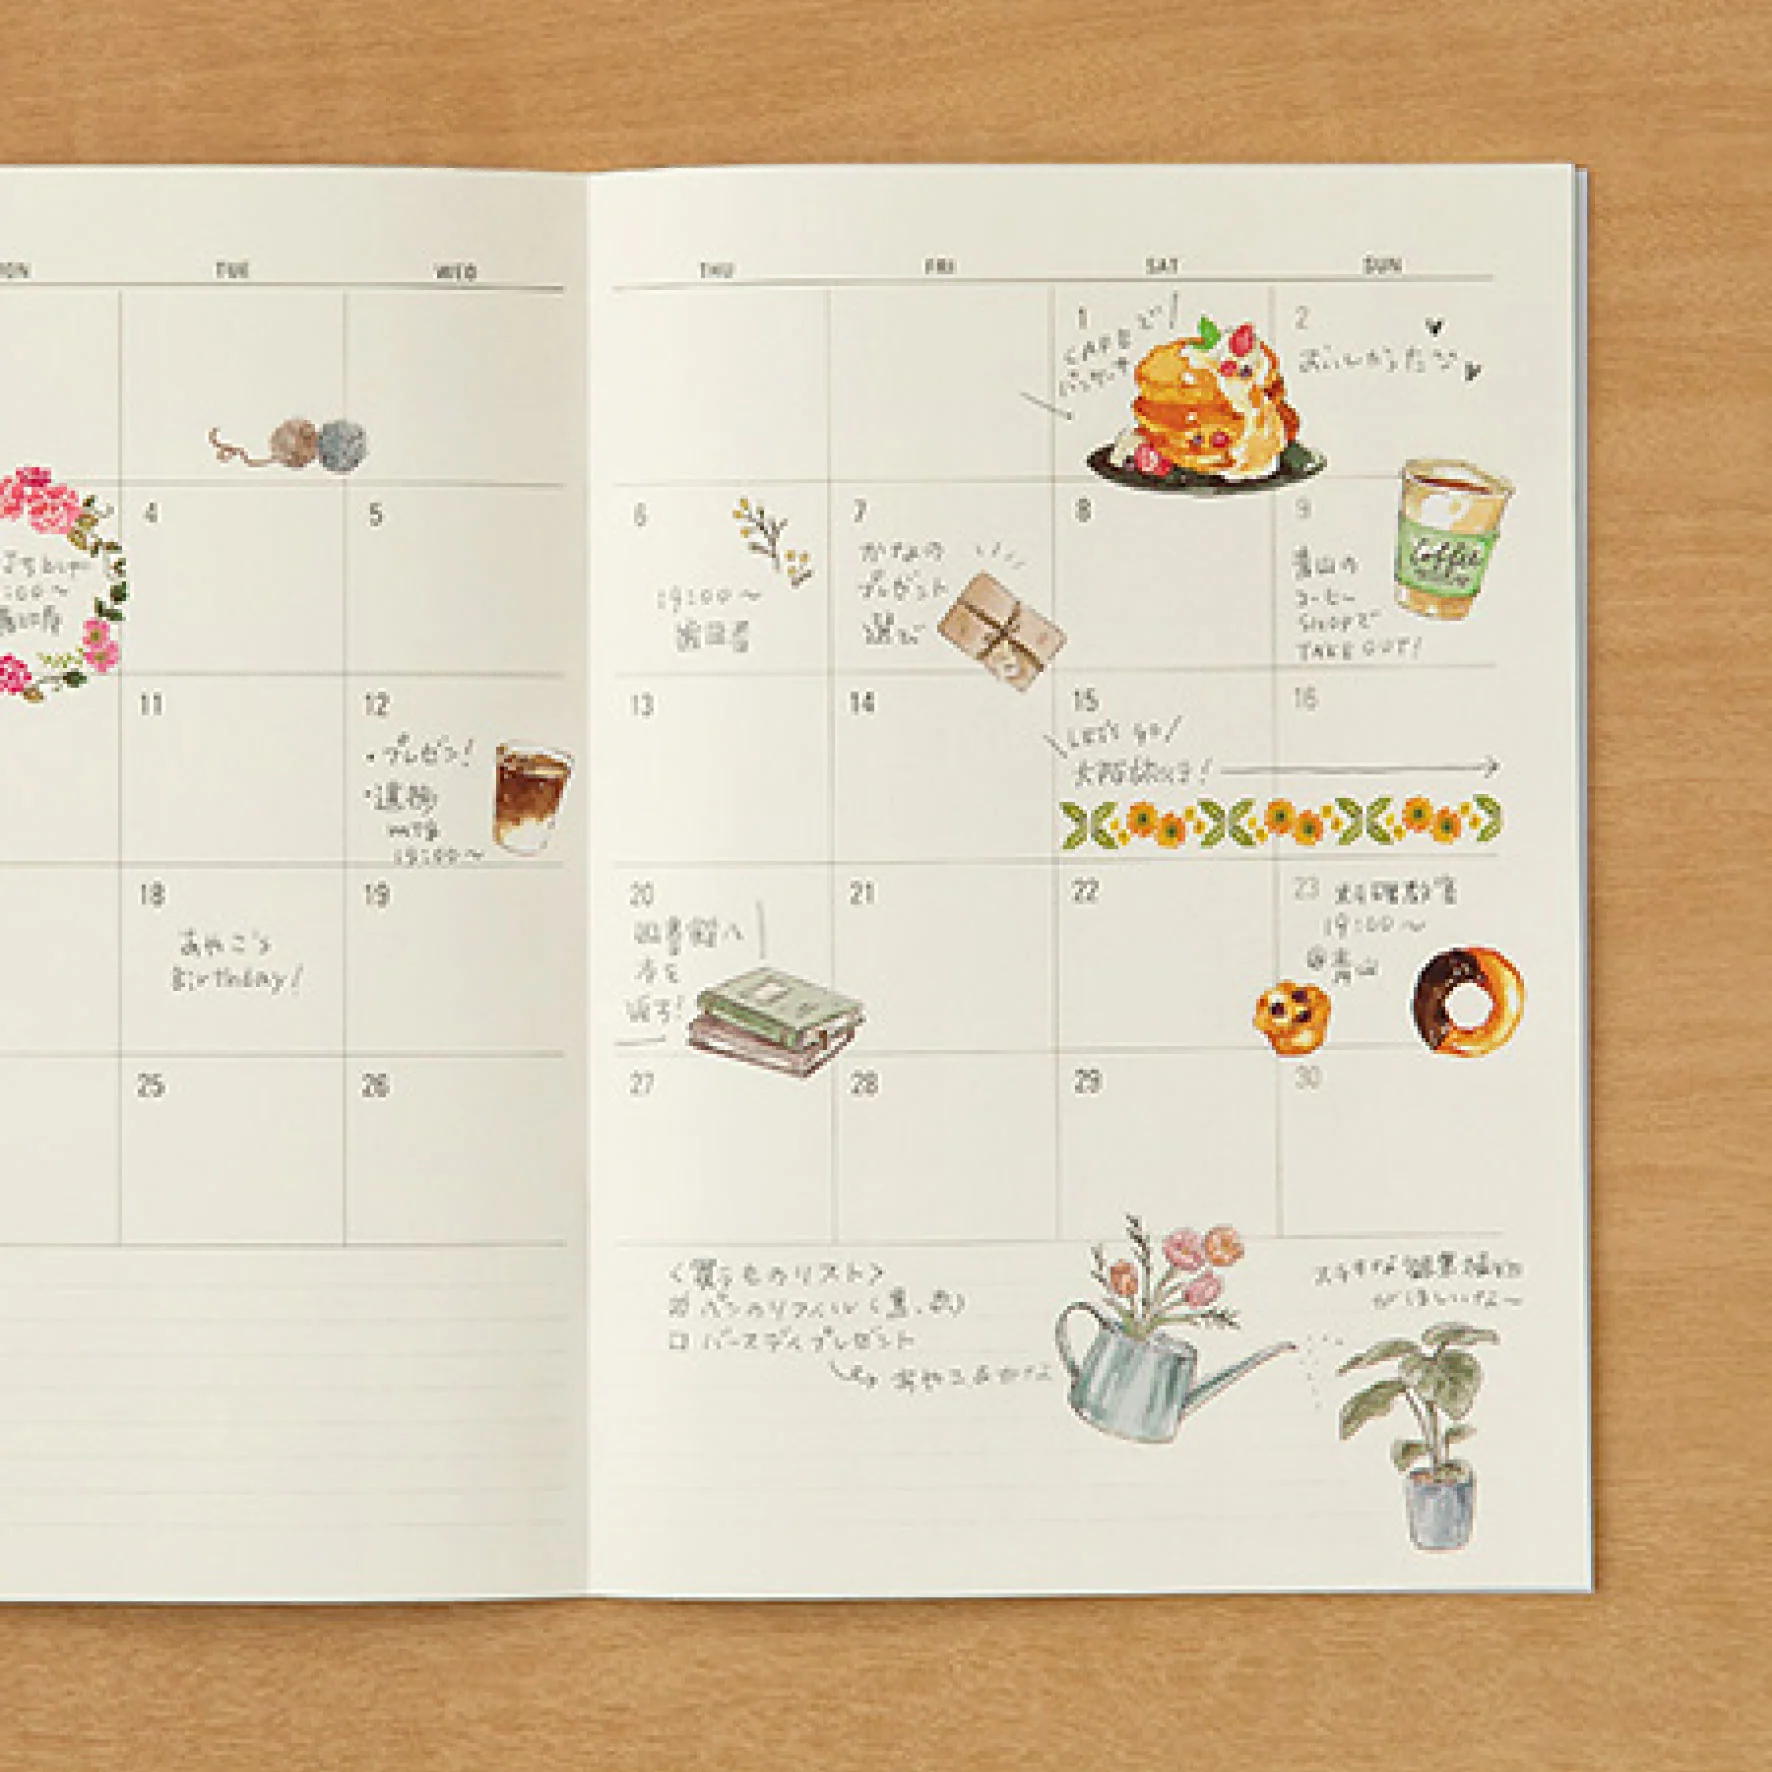 TUE
WED
THU
FRI
SAT
SUN
1
CAFEで
2
おいしかった
4
5
6
19:00〜
歯医者
7
かなの
プレゼント
選び
8
9
青山の
コーヒー
SHOPで
TAKE OUT!
Coffee
11
12
・プレゼン!
・進捗
MTG
19:00〜
13
14
15
LET'S go!
大阪旅行!
16
18
あやこ's
Birthday!
19
20
図書館へ
本を
返す!
21
22
23
料理教室
19:00〜
@青山
25
26
27
28
29
30
<買うものリスト>
ペンのリフィル(黒、赤)
バースデイプレゼント
あやこ&かな
ステキな観葉植物
がほしいな〜